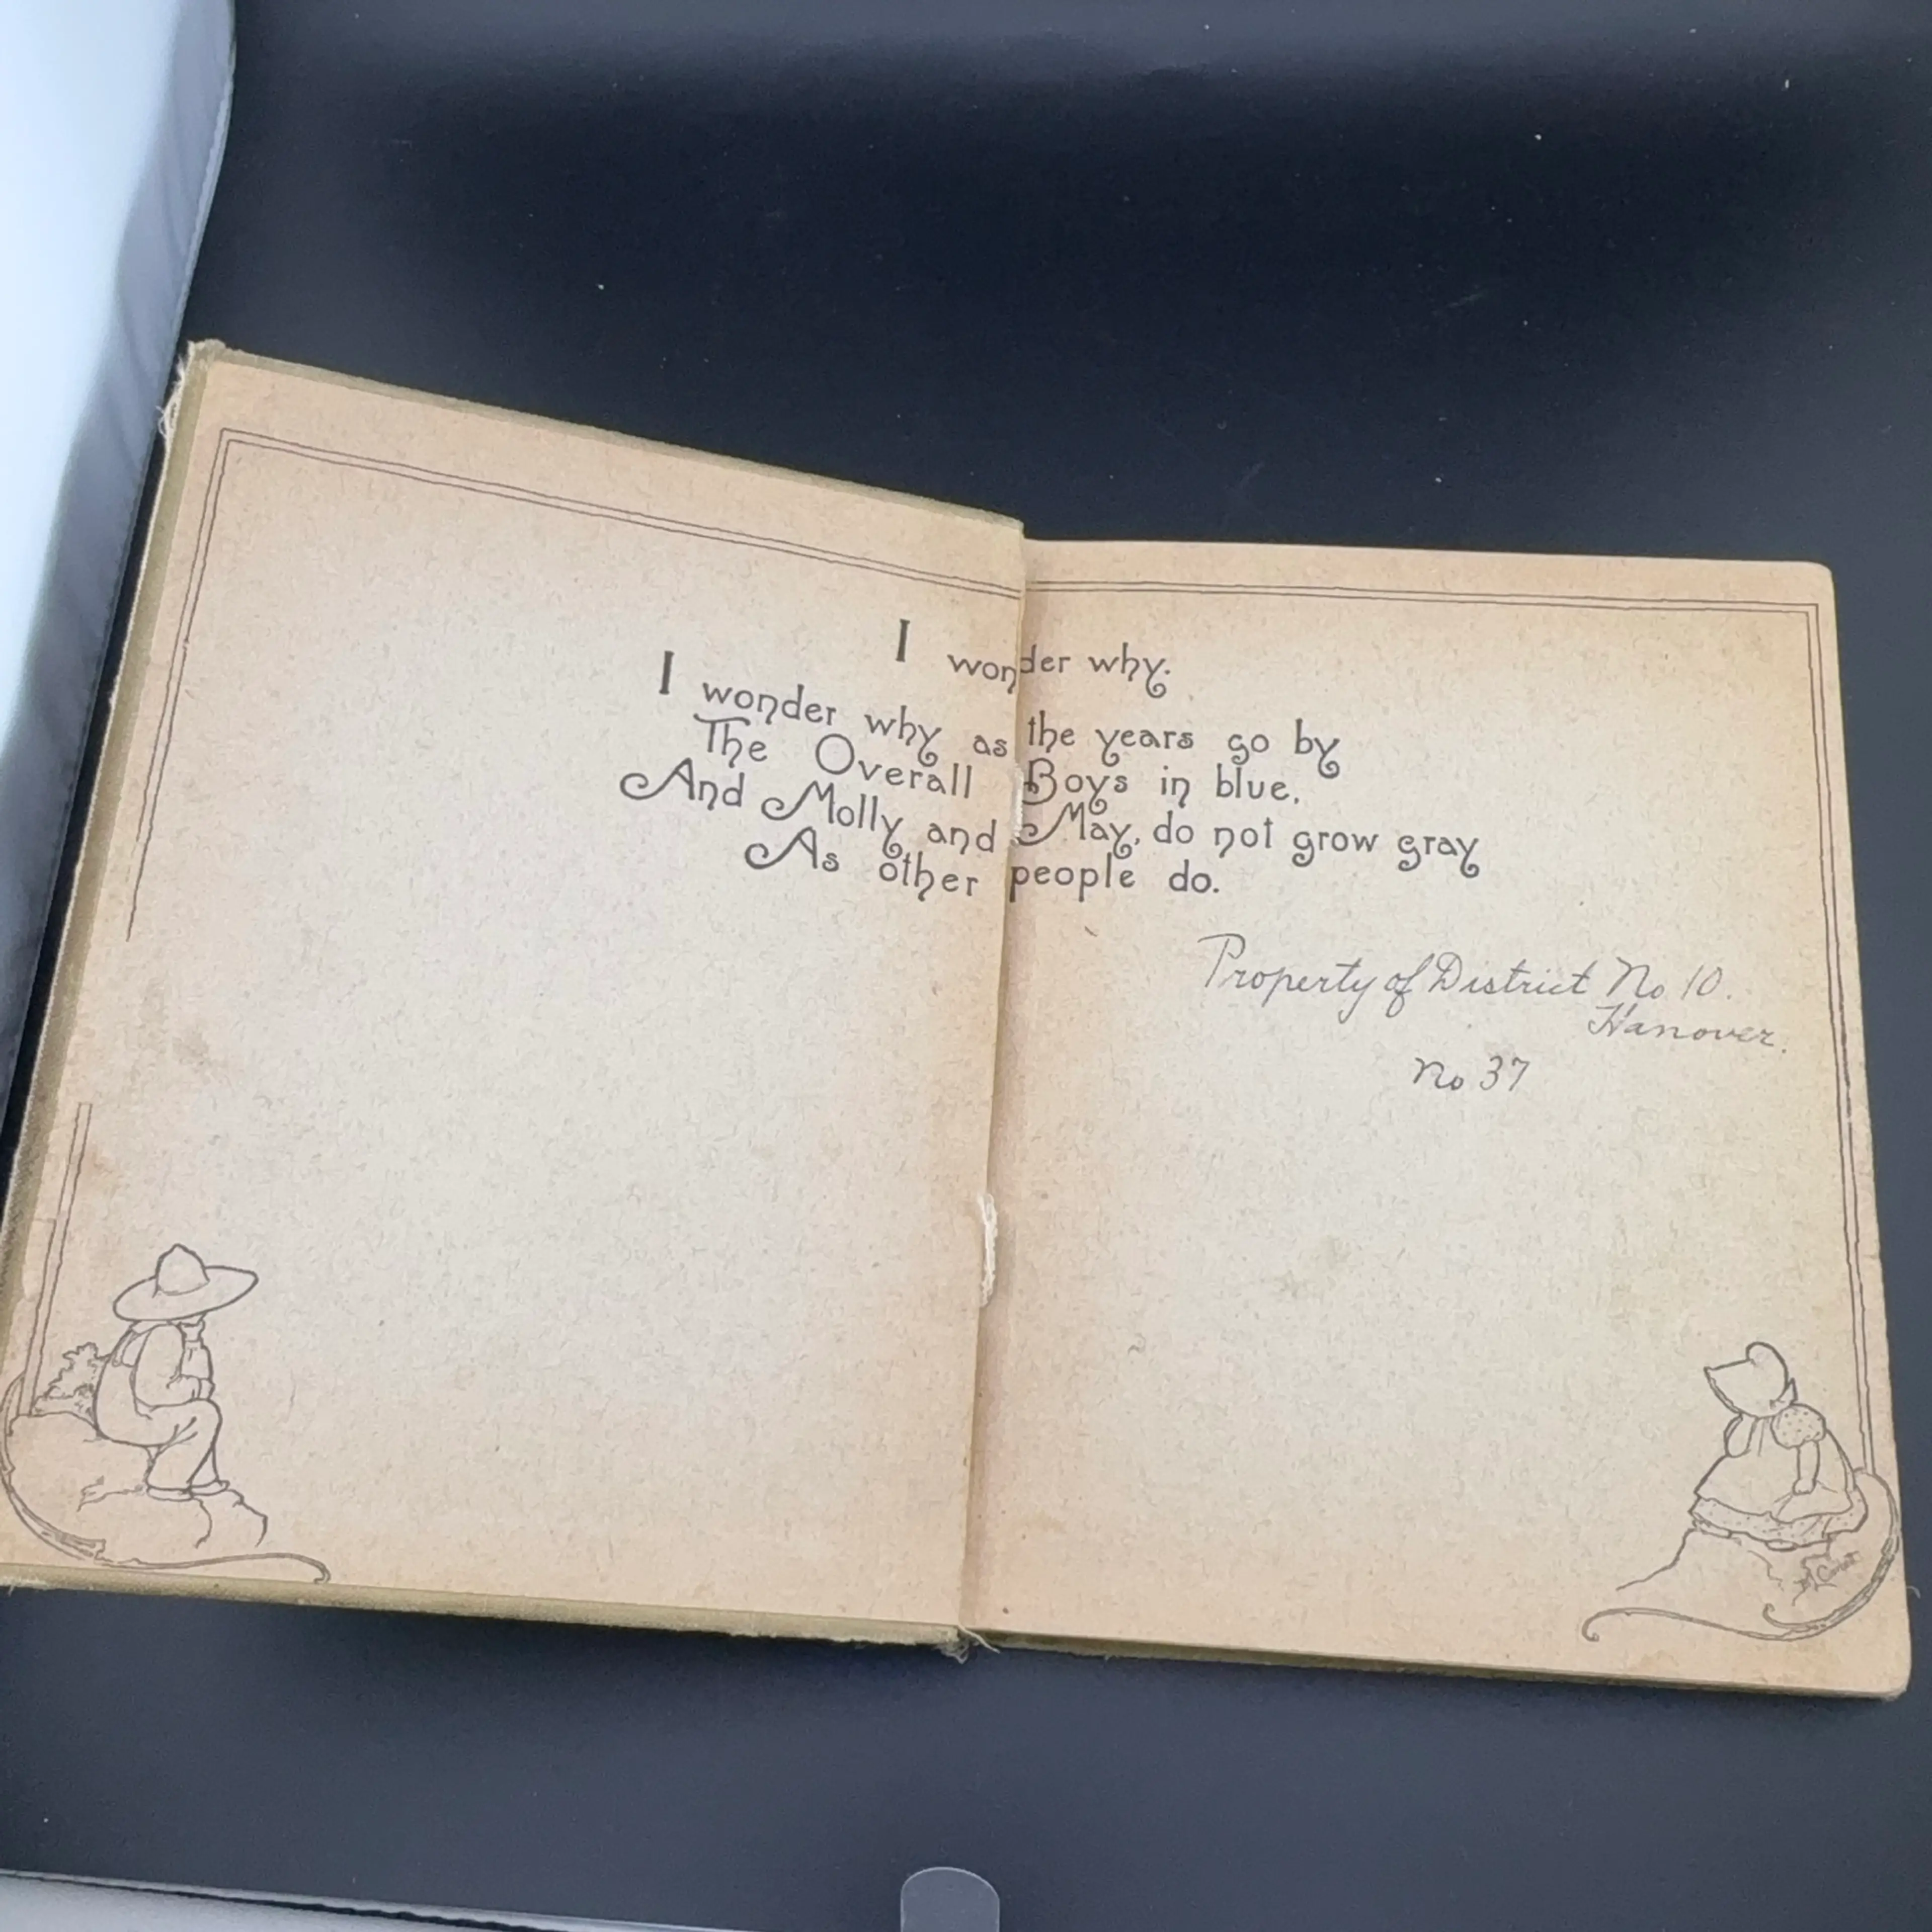 I wonder why.
I wonder why as the years go by
The Overall Boys in blue,
And Molly and May, do not grow gray
As other people do.
Property of District No 10.
Hanover.
No 37